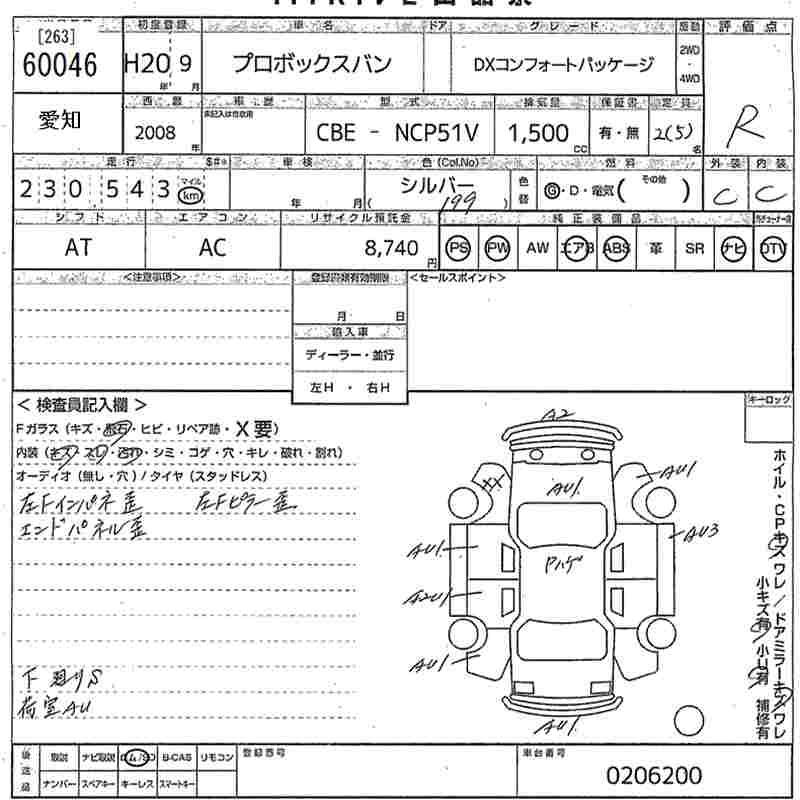 [263]
60046
初度登録
車名
ドア
グレード
駆動
評価点
H20 9
年 月
プロボックスバン
DXコンフォートパッケージ
2WD
・
4WD
R
愛知
西暦
車歴
型式
排気量
保証書
定員
2008
年
CBE - NCP51V
1,500
CC
有・無
2(5)
名
走行
車検
色(Col.No)
燃料
外装
内装
230,543
マイル
km
年 月
シルバー
( 199 )
色替
G・D・電気(その他 )
C
C
シフト
エアコン
リサイクル預託金
純正装備品
AT
AC
8,740
円
PS
PW
AW
エアB
ABS
革
SR
ナビ
DTV
<注意事項>
登録書類有効期限
<セールスポイント>
月 日
輸入車
ディーラー・並行
左H ・ 右H
キーロック
< 検査員記入欄 >
Fガラス(キズ・飛石・ヒビ・リペア跡・X要)
内装(キズ・スレ・汚れ・シミ・コゲ・穴・キレ・破れ・割れ)
オーディオ(無し・穴)/タイヤ(スタッドレス)
左Fインパネ歪 左Fピラー歪
エンドパネル歪
下廻りS
荷室AU
A2
XX
AU1
AU1
AU1
Pハゲ
AU3
A2U1
AU1
AU1
ホイル・CPキズワレ/ドアミラーキズワレ
小キズ有 小U有 補修有
後送品
取説
ナビ取説
ロム/SD
B-CAS
リモコン
ナンバー
スペアキー
キーレス
スマートキー
登録番号
車台番号
0206200